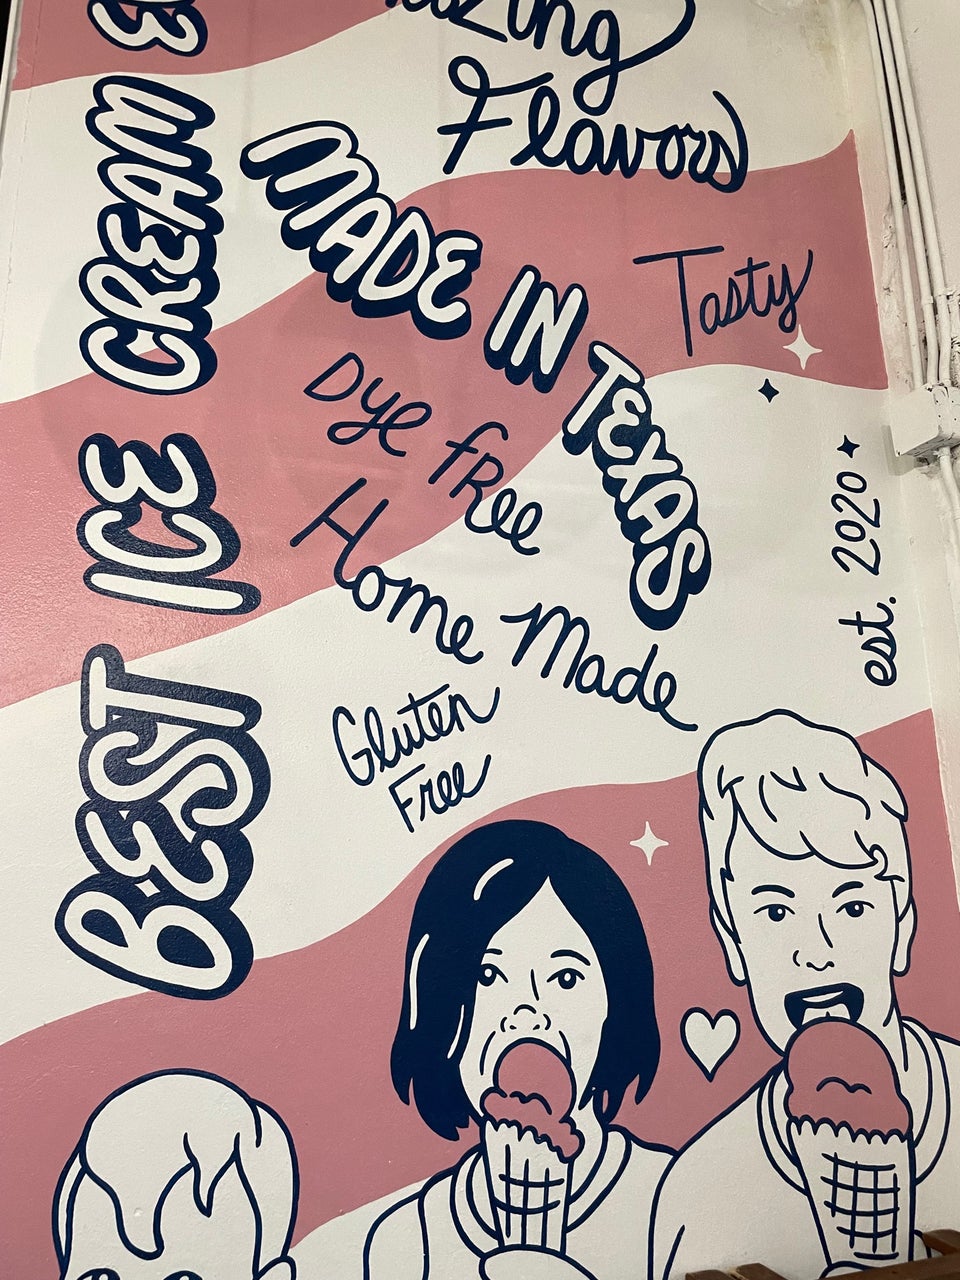 BEST ICE CREAM
Flavors
MADE IN TEXAS
Tasty
Dye fRee
Home Made
est. 2020
Gluten
Free